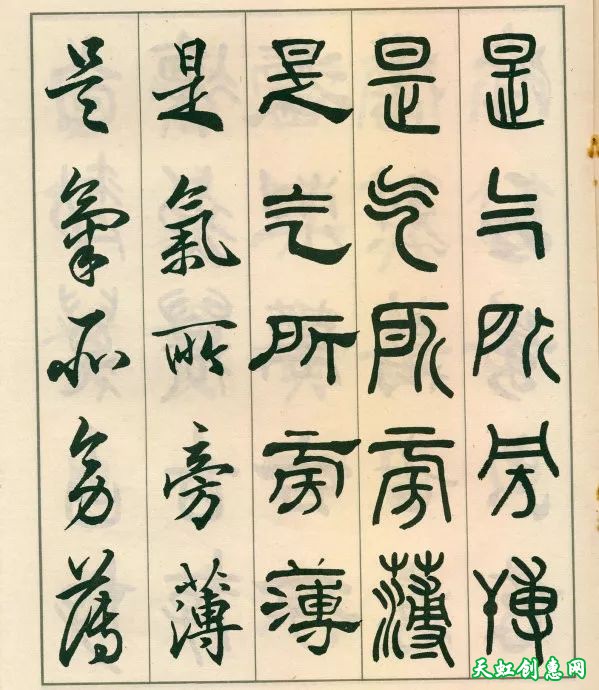 是气所旁薄
是气所旁薄
是气所旁薄
是氣所旁薄
是氣所旁薄
天虹创惠网